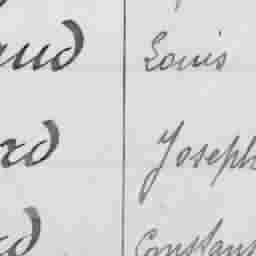 aud Louis
rd Joseph
d Constant